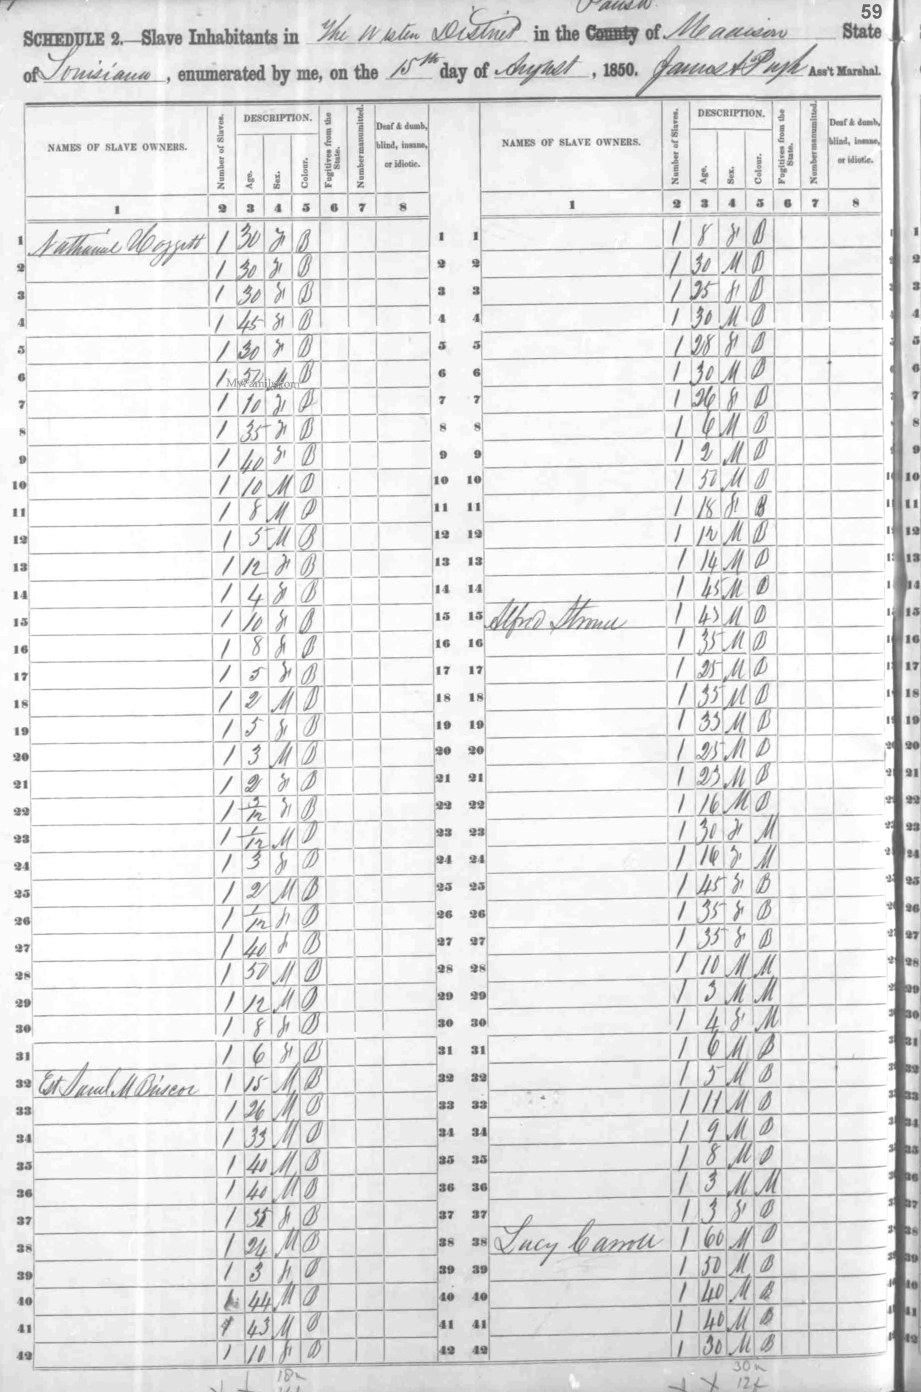 59
Parish
SCHEDULE 2.—Slave Inhabitants in The Western District in the County of Madison State
of Louisiana, enumerated by me, on the 15th day of August, 1850. James Pugh Ass't Marshal.
NAMES OF SLAVE OWNERS. Number of Slaves. DESCRIPTION. Age. Sex. Colour. Fugitives from the State. Number manumitted. Deaf & dumb, blind, insane, or idiotic.
NAMES OF SLAVE OWNERS. Number of Slaves. DESCRIPTION. Age. Sex. Colour. Fugitives from the State. Number manumitted. Deaf & dumb, blind, insane, or idiotic.
1 2 3 4 5 6 7 8 1 2 3 4 5 6 7 8
1 Nathaniel Hoggett 1 30 F B 1 1 1 8 F B
2 1 30 F B 2 2 1 30 M B
3 1 30 F B 3 3 1 25 F B
4 1 45 F B 4 4 1 30 M B
5 1 30 F B 5 5 1 28 F B
6 1 M B 6 6 1 30 M B
MyFamily.com
7 1 10 F B 7 7 1 26 F B
8 1 35 F B 8 8 1 6 M B
9 1 40 F B 9 9 1 2 M B
10 1 10 M B 10 10 1 50 M B
11 1 8 M B 11 11 1 18 F B
12 1 5 M B 12 12 1 12 M B
13 1 12 F B 13 13 1 14 M B
14 1 4 F B 14 14 1 45 M B
15 1 10 F B 15 15 Alfred 1 45 M B
16 1 8 F B 16 16 1 35 M B
17 1 5 F B 17 17 1 25 M B
18 1 2 M B 18 18 1 35 M B
19 1 5 F B 19 19 1 33 M B
20 1 3 M B 20 20 1 25 M B
21 1 2 F B 21 21 1 23 M B
22 1 /12 F B 22 22 1 16 M B
23 1 1/12 M B 23 23 1 30 F M
24 1 3 F B 24 24 1 16 F M
25 1 2 M B 25 25 1 45 F B
26 1 /12 F B 26 26 1 35 F B
27 1 40 F B 27 27 1 35 F B
28 1 50 M B 28 28 1 10 M M
29 1 12 M B 29 29 1 3 M M
30 1 8 F B 30 30 1 4 F M
31 1 6 F B 31 31 1 6 M B
32 Est Saml M Briscoe 1 15 M B 32 32 1 5 M B
33 1 26 M B 33 33 1 11 M B
34 1 33 M B 34 34 1 9 M B
35 1 40 M B 35 35 1 8 M B
36 1 40 M B 36 36 1 3 M M
37 1 F B 37 37 1 3 F B
38 1 24 M B 38 38 Lucy Carroll 1 60 M B
39 1 3 F B 39 39 1 50 M B
40 1 44 M B 40 40 1 40 M B
41 1 43 M B 41 41 1 40 M B
42 1 10 F B 42 42 1 30 M B